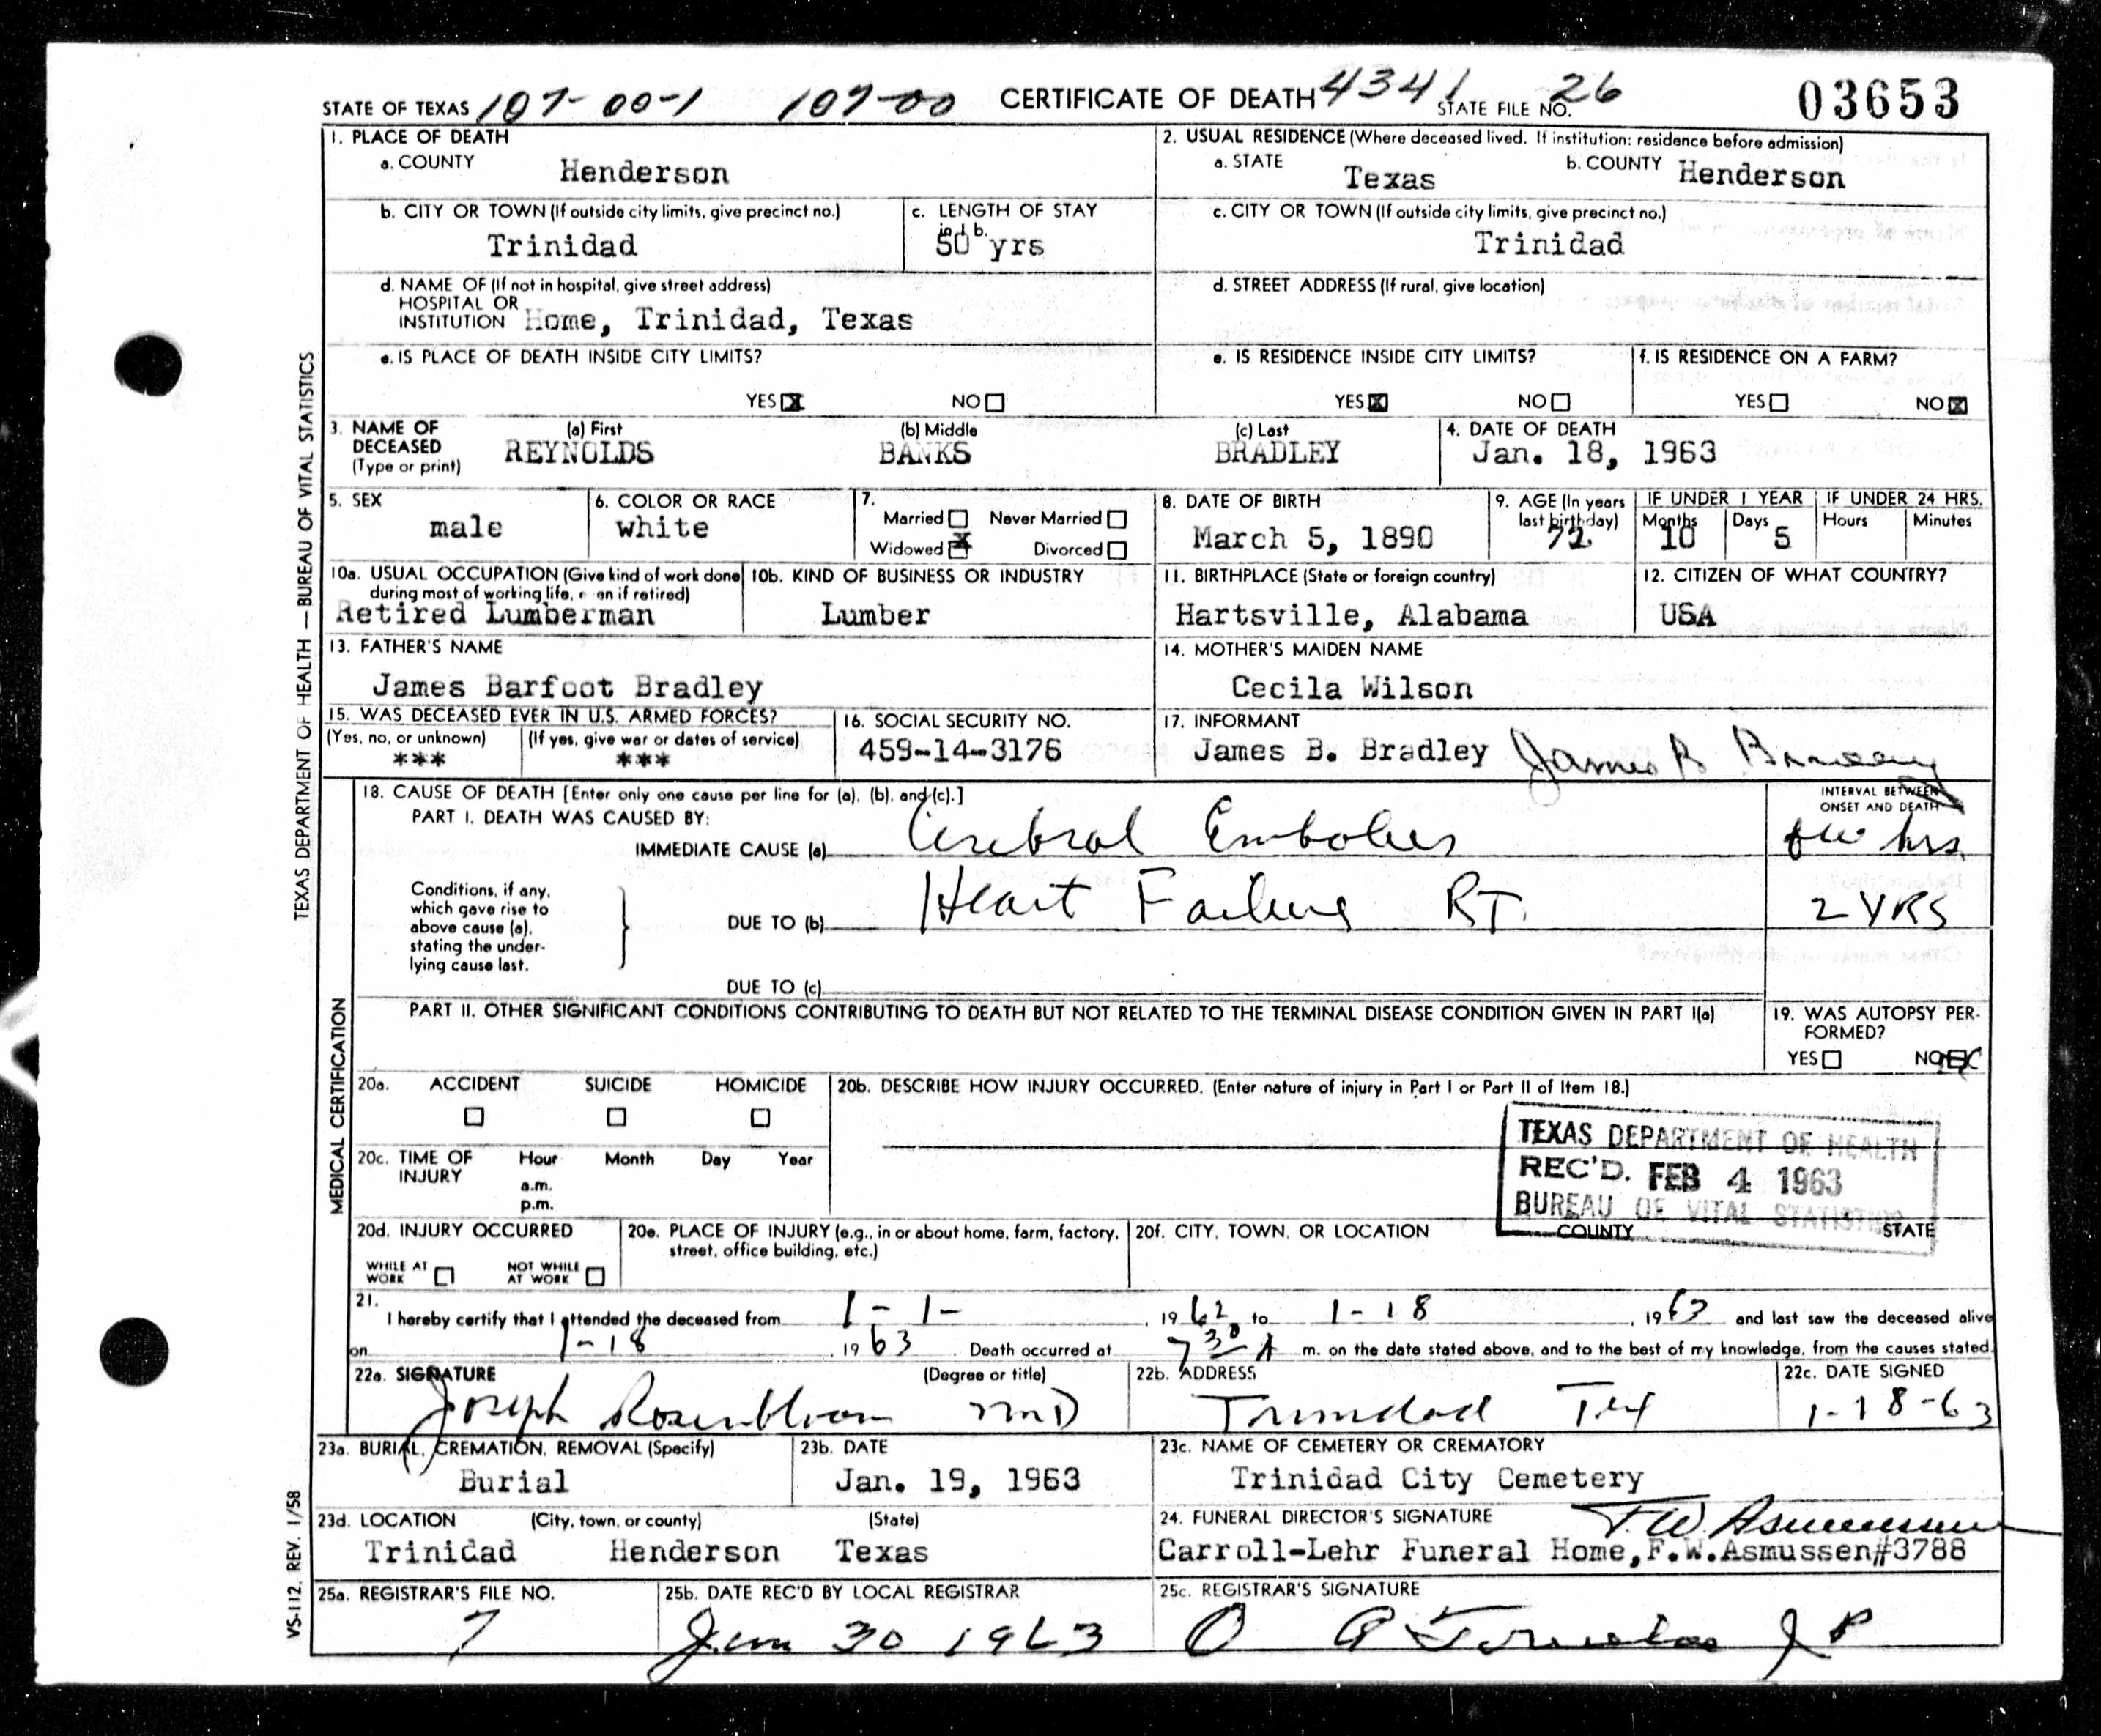 STATE OF TEXAS 107-00-1 107-00 CERTIFICATE OF DEATH 4341 STATE FILE NO. 26 03653
1. PLACE OF DEATH
a. COUNTY Henderson
2. USUAL RESIDENCE (Where deceased lived. If institution: residence before admission)
a. STATE Texas b. COUNTY Henderson
b. CITY OR TOWN (If outside city limits, give precinct no.) Trinidad
c. LENGTH OF STAY in 1 b. 50 yrs
c. CITY OR TOWN (If outside city limits, give precinct no.) Trinidad
d. NAME OF (If not in hospital, give street address)
HOSPITAL OR
INSTITUTION Home, Trinidad, Texas
d. STREET ADDRESS (If rural, give location)
e. IS PLACE OF DEATH INSIDE CITY LIMITS?
YES X NO
e. IS RESIDENCE INSIDE CITY LIMITS?
YES X NO
f. IS RESIDENCE ON A FARM?
YES NO X
3. NAME OF DECEASED (Type or print)
(a) First REYNOLDS
(b) Middle BANKS
(c) Last BRADLEY
4. DATE OF DEATH Jan. 18, 1963
5. SEX male
6. COLOR OR RACE white
7. Married Never Married
Widowed X Divorced
8. DATE OF BIRTH March 5, 1890
9. AGE (In years last birthday) 72
IF UNDER 1 YEAR Months 10 Days 5
IF UNDER 24 HRS. Hours Minutes
10a. USUAL OCCUPATION (Give kind of work done during most of working life, even if retired) Retired Lumberman
10b. KIND OF BUSINESS OR INDUSTRY Lumber
11. BIRTHPLACE (State or foreign country) Hartsville, Alabama
12. CITIZEN OF WHAT COUNTRY? USA
13. FATHER'S NAME James Barfoot Bradley
14. MOTHER'S MAIDEN NAME Cecila Wilson
15. WAS DECEASED EVER IN U.S. ARMED FORCES?
(Yes, no, or unknown) *** (If yes, give war or dates of service) ***
16. SOCIAL SECURITY NO. 459-14-3176
17. INFORMANT James B. Bradley James B Bradley
18. CAUSE OF DEATH [Enter only one cause per line for (a), (b), and (c).]
INTERVAL BETWEEN ONSET AND DEATH
PART I. DEATH WAS CAUSED BY:
IMMEDIATE CAUSE (a) Cerebral Embolus few hrs.
Conditions, if any, which gave rise to above cause (a), stating the underlying cause last.
DUE TO (b) Heart Failure RT. 2 YRS
DUE TO (c)
PART II. OTHER SIGNIFICANT CONDITIONS CONTRIBUTING TO DEATH BUT NOT RELATED TO THE TERMINAL DISEASE CONDITION GIVEN IN PART I(a)
19. WAS AUTOPSY PERFORMED?
YES NO X
20a. ACCIDENT SUICIDE HOMICIDE
20b. DESCRIBE HOW INJURY OCCURRED. (Enter nature of injury in Part I or Part II of Item 18.)
TEXAS DEPARTMENT OF HEALTH
REC'D. FEB 4 1963
BUREAU OF VITAL STATISTICS
20c. TIME OF INJURY Hour Month Day Year
a.m.
p.m.
20d. INJURY OCCURRED
WHILE AT WORK NOT WHILE AT WORK
20e. PLACE OF INJURY (e.g., in or about home, farm, factory, street, office building, etc.)
20f. CITY, TOWN, OR LOCATION COUNTY STATE
21. I hereby certify that I attended the deceased from 1-1-, 1962, to 1-18, 1963 and last saw the deceased alive
on 1-18, 1963. Death occurred at 7 30 A m. on the date stated above, and to the best of my knowledge, from the causes stated.
22a. SIGNATURE (Degree or title) Joseph Rosenbloom MD
22b. ADDRESS Trinidad Tex
22c. DATE SIGNED 1-18-63
23a. BURIAL, CREMATION, REMOVAL (Specify) Burial
23b. DATE Jan. 19, 1963
23c. NAME OF CEMETERY OR CREMATORY Trinidad City Cemetery
23d. LOCATION (City, town, or county) (State)
Trinidad Henderson Texas
24. FUNERAL DIRECTOR'S SIGNATURE F.W. Asmussen
Carroll-Lehr Funeral Home, F.W.Asmussen#3788
25a. REGISTRAR'S FILE NO. 7
25b. DATE REC'D BY LOCAL REGISTRAR Jan 30 1963
25c. REGISTRAR'S SIGNATURE
TEXAS DEPARTMENT OF HEALTH — BUREAU OF VITAL STATISTICS
MEDICAL CERTIFICATION
VS-112, REV. 1/58